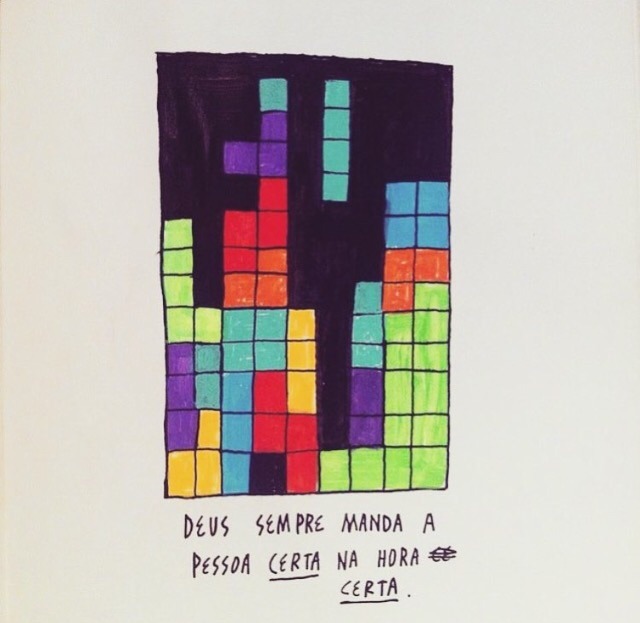 DEUS SEMPRE MANDA A
PESSOA CERTA NA HORA
CERTA.